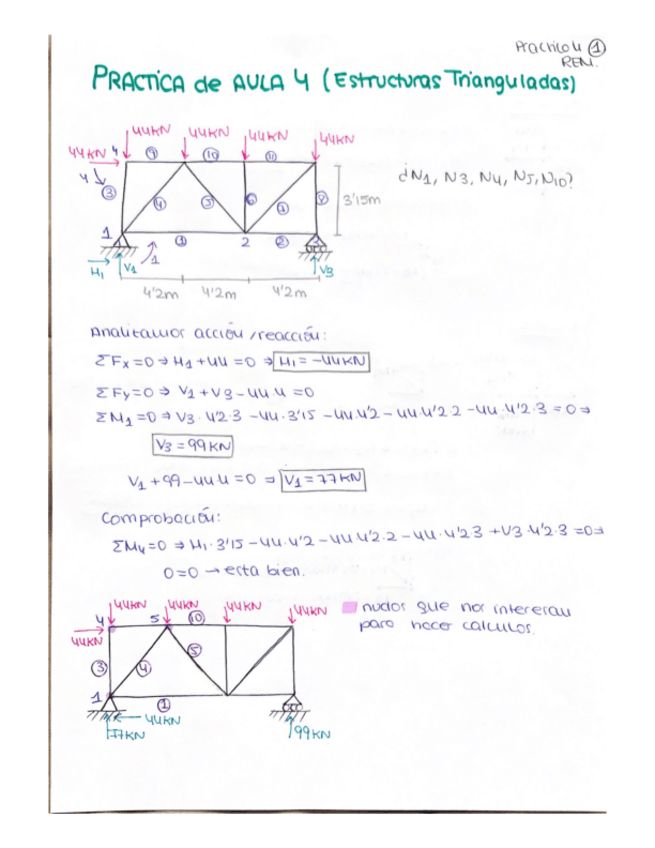 Practico 4 ①
REN.
PRACTICA de AULA 4 (Estructuras Trianguladas)
44KN 44KN 44KN 44KN
44KN 4 ⑨ ⑩ ⑪
4 ③ ④ ⑤ ⑥ ⑦ ⑧ 3'15m
¿N1, N3, N4, N5, N10?
1 ① 2 ② 3
H1 V1 1 V3
4'2m 4'2m 4'2m
Analizamos acción/reacción:
ΣFx=0 ⇒ H1+44=0 ⇒ H1=-44KN
ΣFy=0 ⇒ V1+V3-44·4=0
ΣM1=0 ⇒ V3·4'2·3-44·3'15-44·4'2-44·4'2·2-44·4'2·3=0 ⇒
V3=99KN
V1+99-44·4=0 ⇒ V1=77KN
Comprobación:
ΣM4=0 ⇒ H1·3'15-44·4'2-44·4'2·2-44·4'2·3+V3·4'2·3=0 ⇒
0=0 → esta bien.
44KN 44KN 44KN 44KN
4 5 ⑩
44KN
③ ④ ⑤
1 ①
44KN
77KN 99KN
nudos que nos interesan
para hacer calculos.